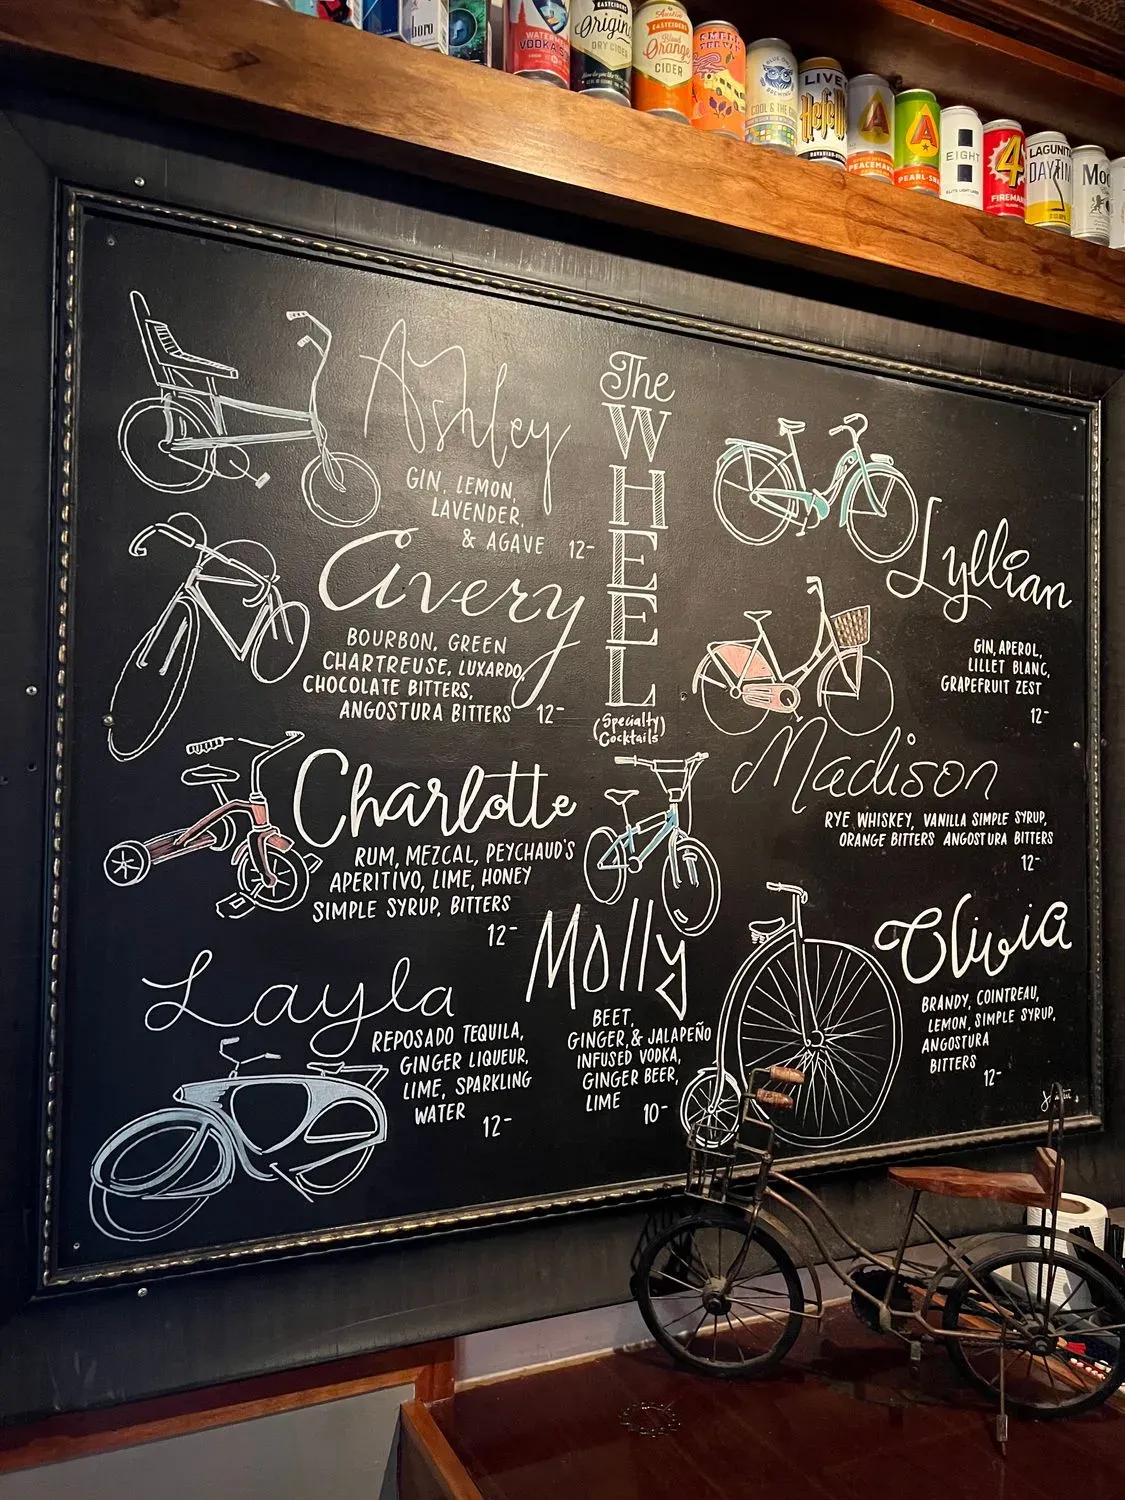 boro
WATERM
VODKA S
EASTCIDERS
Original
DRY CIDER
Austin
EASTCIDERS
Blood
Orange
CIDER
BLUE OWL
BREWING
COOL & THE
LIVE
Hefe
PEACEMAK
A
PEARL-SN
EIGHT
4
FIREMAN
LAGUNIT
DAYTIM
Mo
The
WHEEL
(Specialty)
Cocktails
Ashley
GIN, LEMON,
LAVENDER,
& AGAVE 12-
Avery
BOURBON, GREEN
CHARTREUSE, LUXARDO,
CHOCOLATE BITTERS,
ANGOSTURA BITTERS 12-
Charlotte
RUM, MEZCAL, PEYCHAUD'S
APERITIVO, LIME, HONEY
SIMPLE SYRUP, BITTERS
12-
Layla
REPOSADO TEQUILA,
GINGER LIQUEUR,
LIME, SPARKLING
WATER 12-
Molly
BEET,
GINGER, & JALAPEÑO
INFUSED VODKA,
GINGER BEER,
LIME 10-
Lyllian
GIN, APEROL,
LILLET BLANC,
GRAPEFRUIT ZEST
12-
Madison
RYE WHISKEY, VANILLA SIMPLE SYRUP,
ORANGE BITTERS ANGOSTURA BITTERS
12-
Olivia
BRANDY, COINTREAU,
LEMON, SIMPLE SYRUP,
ANGOSTURA
BITTERS
12-